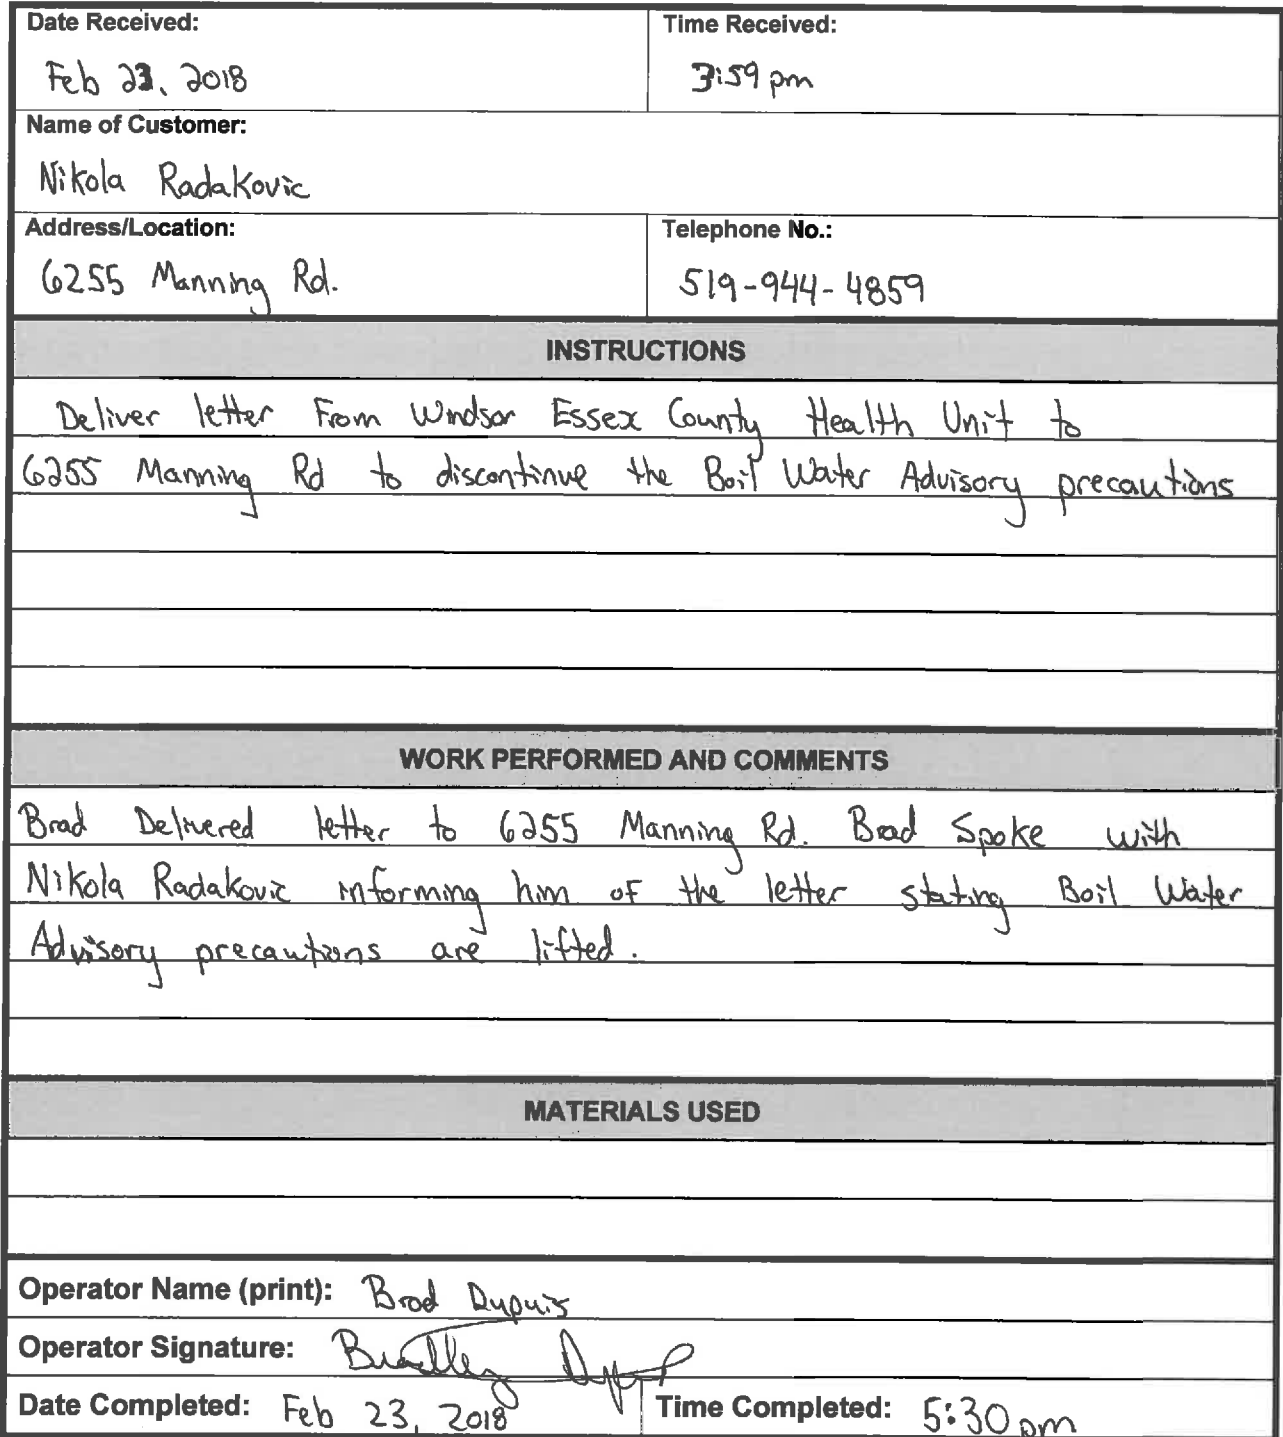 Date Received:
Time Received:
Feb 23, 2018
3:59 pm
Name of Customer:
Nikola Radakovic
Address/Location:
Telephone No.:
6255 Manning Rd.
519-944-4859
INSTRUCTIONS
Deliver letter From Windsor Essex County Health Unit to
6255 Manning Rd to discontinue the Boil Water Advisory precautions
WORK PERFORMED AND COMMENTS
Brad Delivered letter to 6255 Manning Rd. Brad Spoke with
Nikola Radakovic informing him of the letter stating Boil Water
Advisory precautions are lifted.
MATERIALS USED
Operator Name (print): Brad Dupuis
Operator Signature: Bradley Dupuis
Date Completed: Feb 23, 2018
Time Completed: 5:30 pm